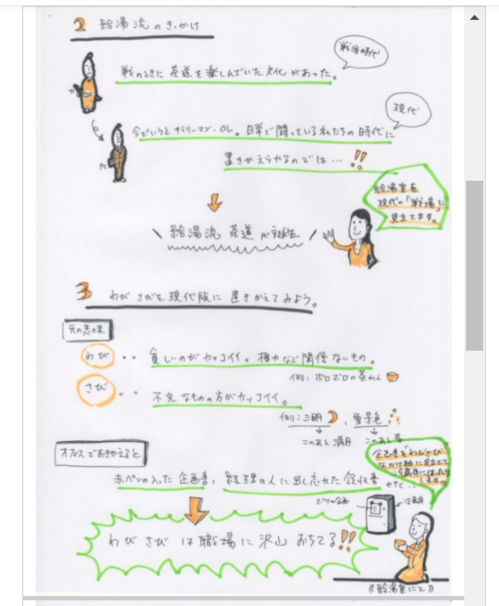 2 給湯流のきっかけ
戦国時代
戦のときに茶道を楽しんでいた文化があった。
現代
今でいうとサラリーマン・OL。日常で闘っている私たちの時代に
置きかえられるのでは…!!
給湯室を
現代の「戦場」に
見立てます。
給湯流 茶道が誕生
3 わびさびを現代版に置きかえてみよう。
元の意味
わび・・貧しいのがカッコイイ。権力など関係ないもの。
例:ボロボロの茶わん
さび・・不完なものの方がカッコイイ。
例:三日月、雪景色
このあと満月 このあと春
オフィスでおきかえると
赤ペンの入った企画書、経理の人に出し忘れた領収書
etc...
企画書をわびさび
ボツの企画
冷蔵庫
わびさびは職場に沢山おちてる!!
《給湯室にて》